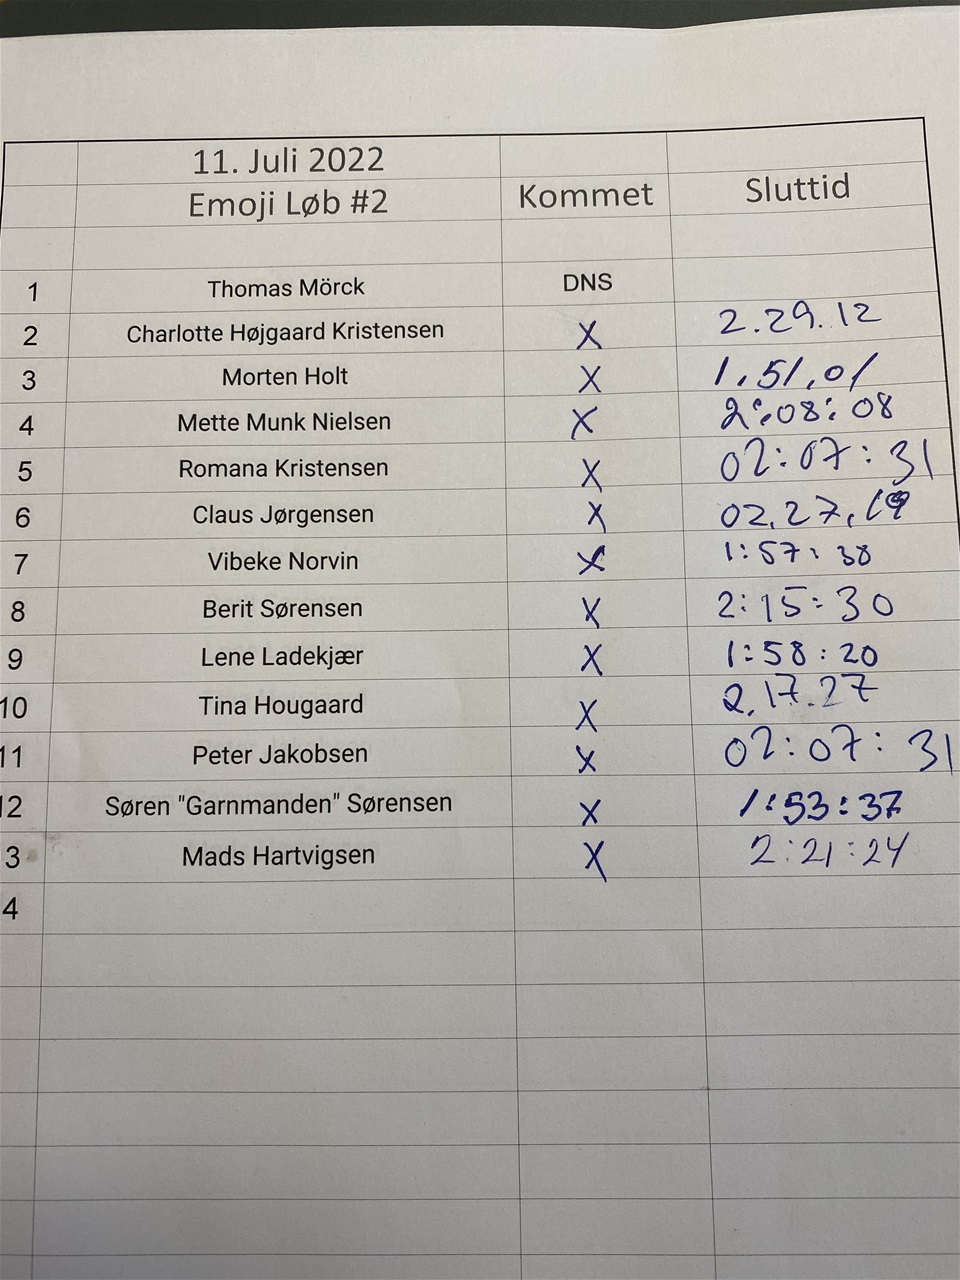 11. Juli 2022
Emoji Løb #2 Kommet Sluttid
1 Thomas Mörck DNS
2 Charlotte Højgaard Kristensen X 2.29.12
3 Morten Holt X 1.51.01
4 Mette Munk Nielsen X 2:08:08
5 Romana Kristensen X 02:07:31
6 Claus Jørgensen X 02.27.19
7 Vibeke Norvin X 1:57:38
8 Berit Sørensen X 2:15:30
9 Lene Ladekjær X 1:58:20
10 Tina Hougaard X 2.17.27
11 Peter Jakobsen X 02:07:31
12 Søren "Garnmanden" Sørensen X 1:53:37
3 Mads Hartvigsen X 2:21:24
4